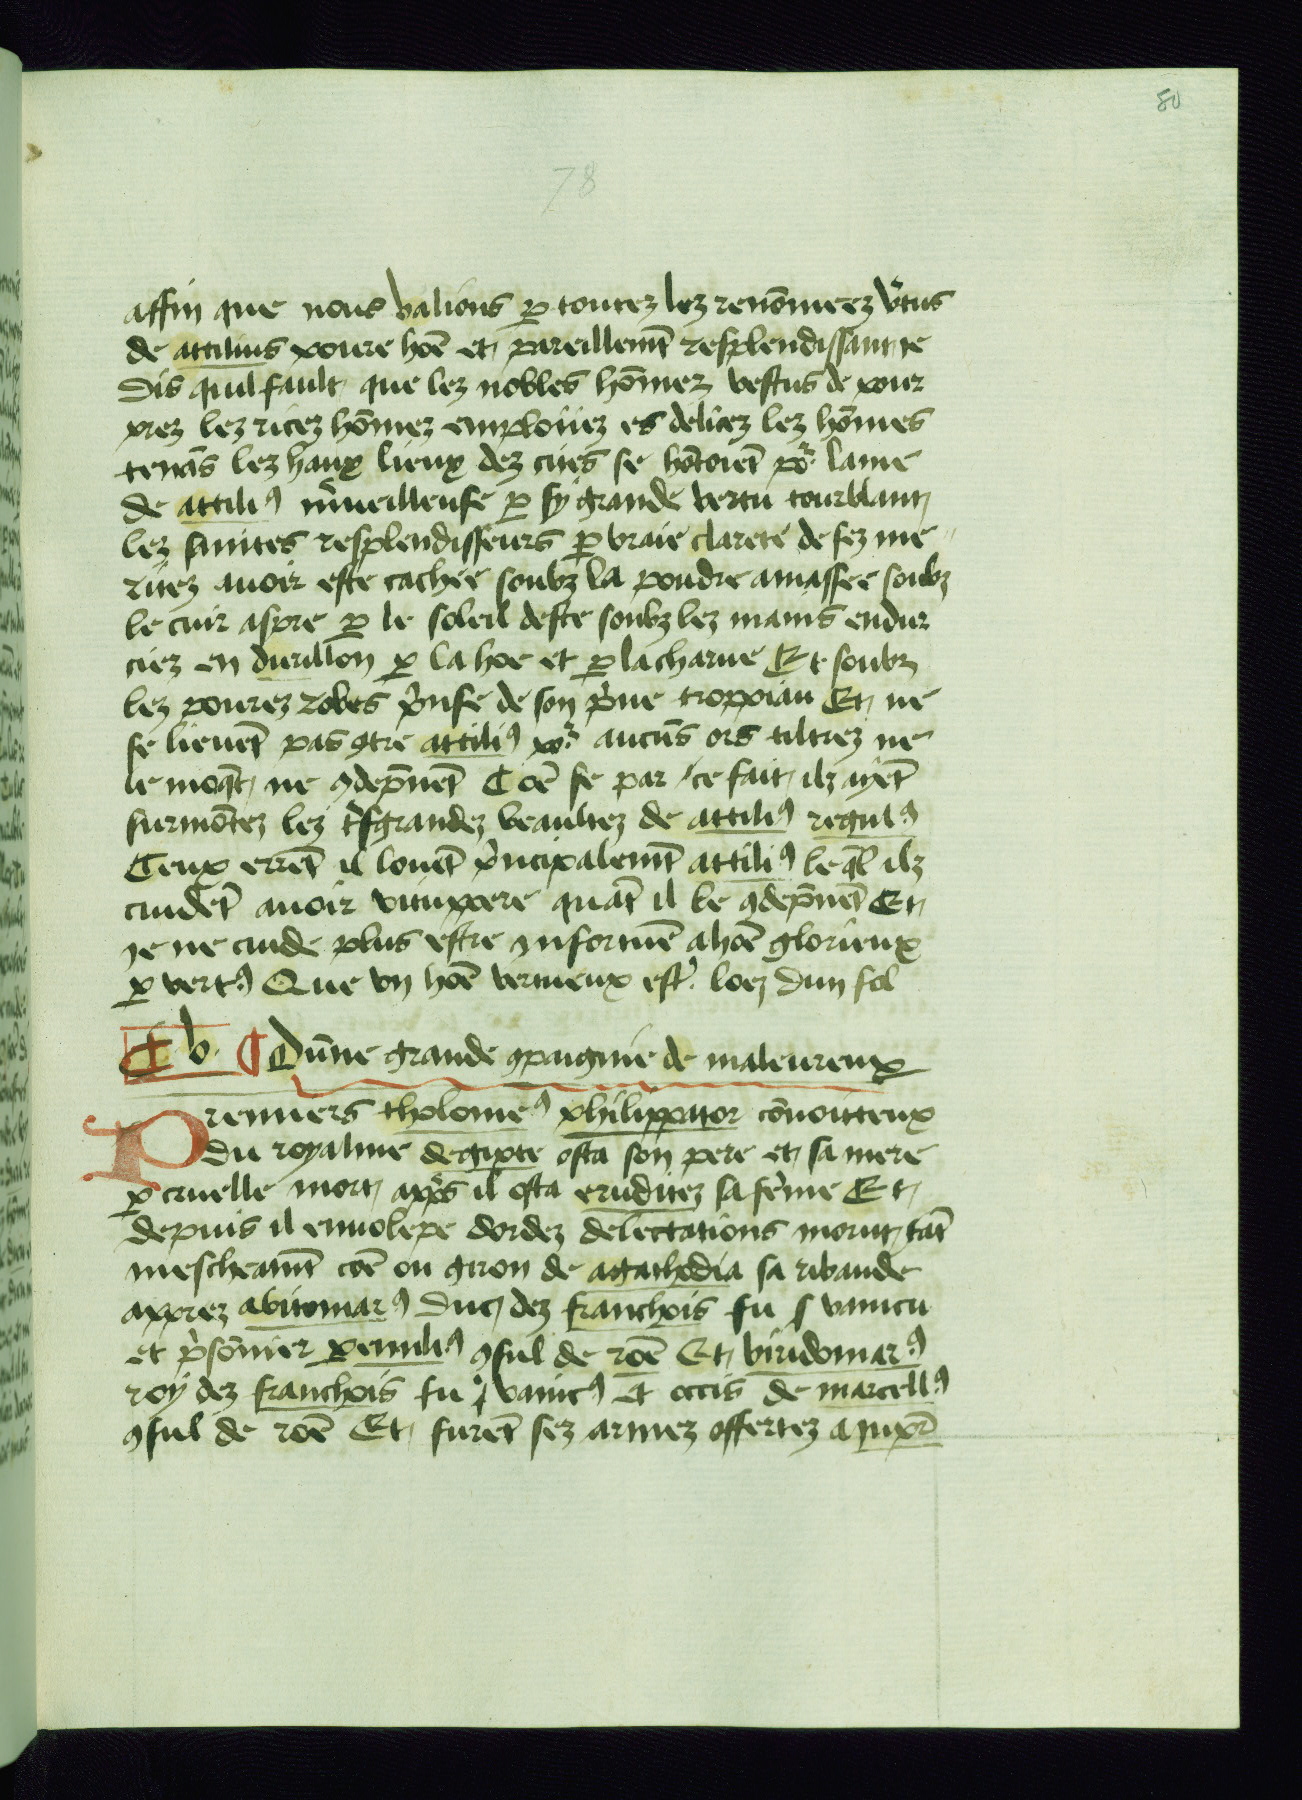 80
78
affin que nous valions ꝑ toutez lez renōmeez v̾tus
de attilius poure hoē et pareillemt̄ resplendissant Je
dis quil fault que lez nobles hōmez vestus de pour
prez lez ricez hōmez emploiiez es delicez lez hōmes
tenās lez haux lieux dez cités se hōtoiēt po͛ lame
de attiliꝰ m̾ueilleuse ꝑ sy grande vertu tourblant
lez suites resplendisseurs ꝑ vraie clarete de sez me
ritez auoir este cachée soubz la poudre amassee soubz
le cuir aspre ꝑ le soleil deste soubz lez mains endur
ciez en durillon ꝑ la hoe et ꝑ la charue Et soubz
lez pourez robes p̾nse de son p̾ue troppiau Et ne
se lieuēt pas ꝯtre attiliꝰ po͛ aucūs ors tiltrez ne
le moq̄t ne ꝯdēpnēt Coē se par ce fait ilz ayēt
surmōtez lez t̾sgrandez beaultez de attiliꝰ regulꝰ
Ceux errēt il louēt p̾ncipalemt̄ attiliꝰ leq̄l ilz
cuidēt auoir vitupere quāt il le ꝯdēpnēt Et
Je ne cuide plus estre ꝯuformē a hoē glorieux
ꝑ vertꝰ Que vn hoē vertueux est̾ loez dun fol
C v. ¶ Dūne grande ꝯpaignie de maleureux
Premiers tholomeꝰ philippator cōuoitteux
du royalme degipte osta son pere et sa mere
ꝑ cruelle mort app̾s il osta eruditez sa fēme Et
depuis il enuolepe dordez delectations morut tāt
mescheamt̄ coē ou giron de agathodia sa ribaude
apprez abitomarꝰ duc dez franchois fu vaincu
et p̾sōnier ꝑ emiliꝰ ꝯsul de roē Et viridomarꝰ
roy dez franchois fu vaincꝰ et occis de marcellꝰ
ꝯsul de roē Et furēt sez armez offertez a Jup̄r